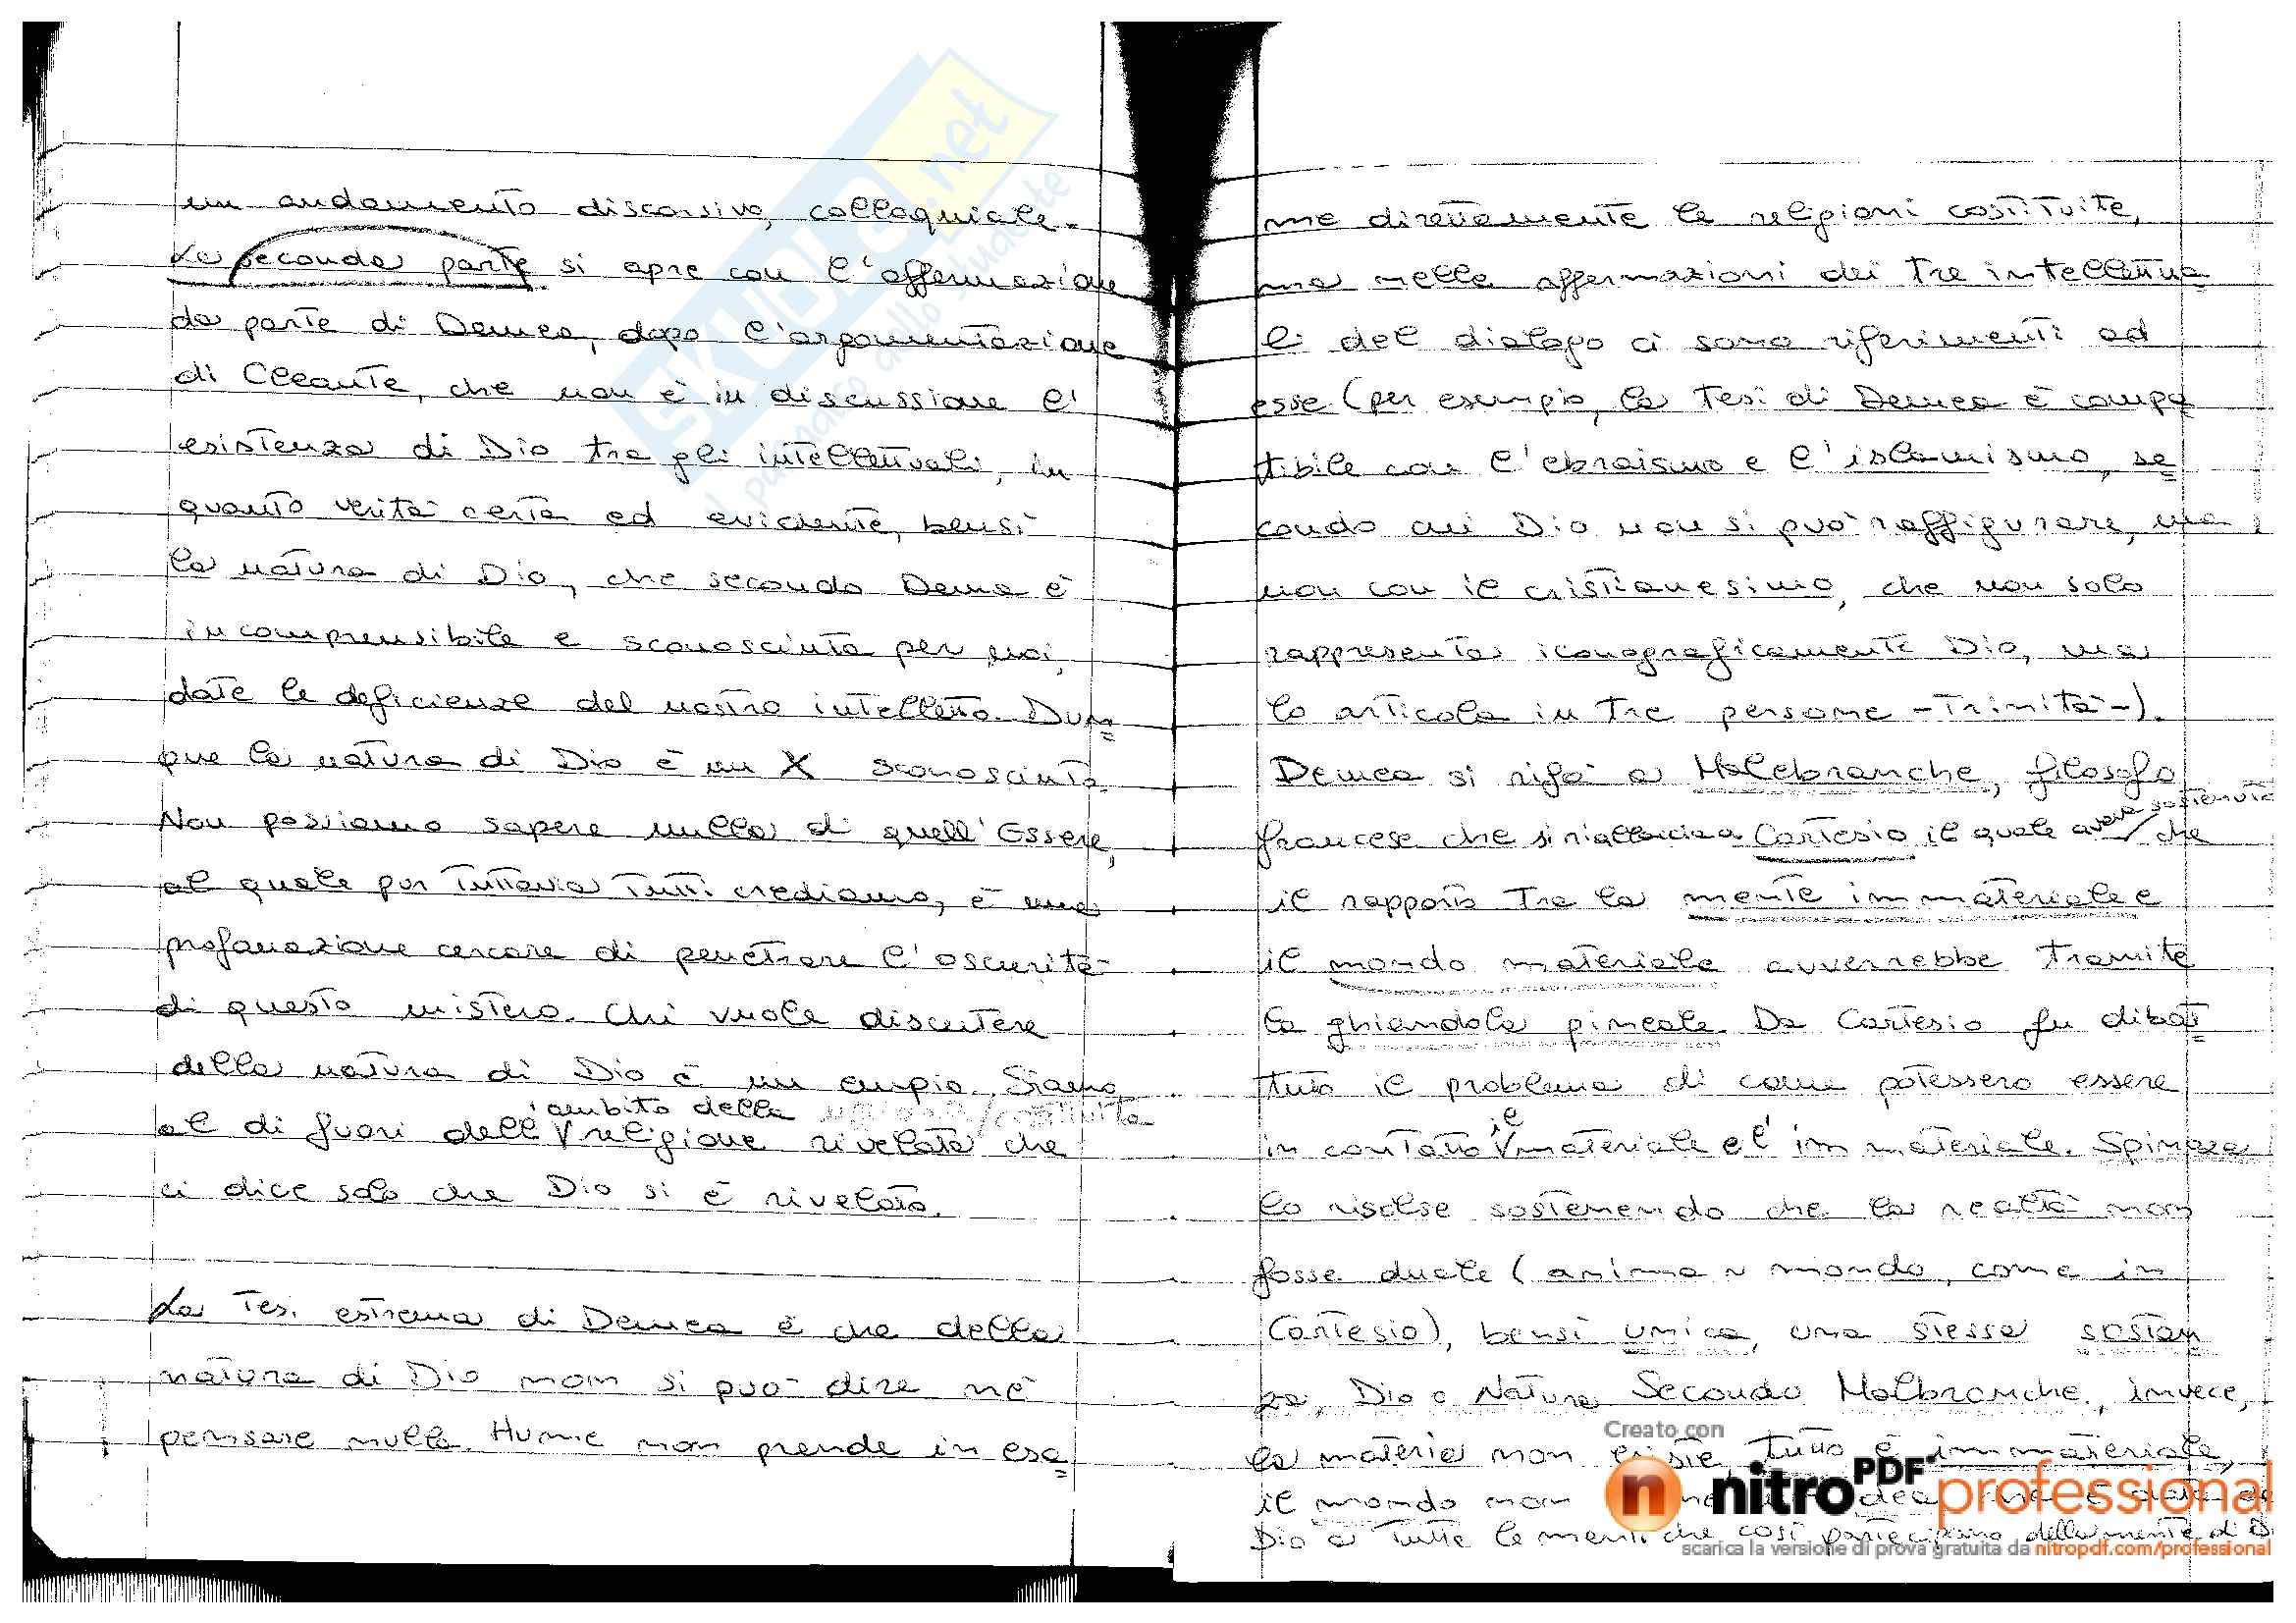 un andamento discorsivo, colloquiale.
La seconda parte si apre con l'affermazione
da parte di Demea, dopo l'argomentazione
di Cleante, che non è in discussione l'
esistenza di Dio tra gli intellettuali, in
quanto verità certa ed evidente, bensì
la natura di Dio, che secondo Demea è
incomprensibile e sconosciuta per noi,
date le deficienze del nostro intelletto. Dun=
que la natura di Dio è un X sconosciuta.
Non possiamo sapere nulla di quell'Essere,
al quale pur tuttavia tutti crediamo, è una
profanazione cercare di penetrare l'oscurità
di questo mistero. Chi vuole discutere
della natura di Dio è un empio. Siamo
ambito della /costituita
al di fuori dell' religione rivelata che
ci dice solo che Dio si è rivelato.
La tesi estrema di Demea è che della
natura di Dio non si può dire nè
pensare nulla. Hume non prende in esa=
me direttamente le religioni costituite,
ma nelle affermazioni dei tre intellettua=
li del dialogo ci sono riferimenti ad
esse (per esempio, la tesi di Demea è compa
tibile con l'ebraismo e l'islamismo, se=
condo cui Dio non si può raffigurare, ma
non con il cristianesimo, che non solo
rappresenta iconograficamente Dio, ma
lo articola in tre persone -Trinità-).
Demea si rifà a Malebranche, filosofo
sostenuto
francese che si riallaccia a Cartesio il quale aveva che
il rapporto tra la mente immateriale e
il mondo materiale avverrebbe tramite
la ghiandola pineale. Da Cartesio fu dibat=
tuto il problema di come potessero essere
il
in contatto materiale e l'immateriale. Spinoza
lo risolse sostenendo che la realtà non
fosse duale (anima ~ mondo, come in
Cartesio), bensì unica, una stessa sostan
za, Dio o Natura. Secondo Malbranche, invece,
la materia non esiste, tutto è immateriale,
il mondo non
Dio a tutte le menti che così partecipano della mente di D
SKUOLA.net
il paradiso dello studente
Creato con
nitroPDF professional
scarica la versione di prova gratuita da nitropdf.com/professional